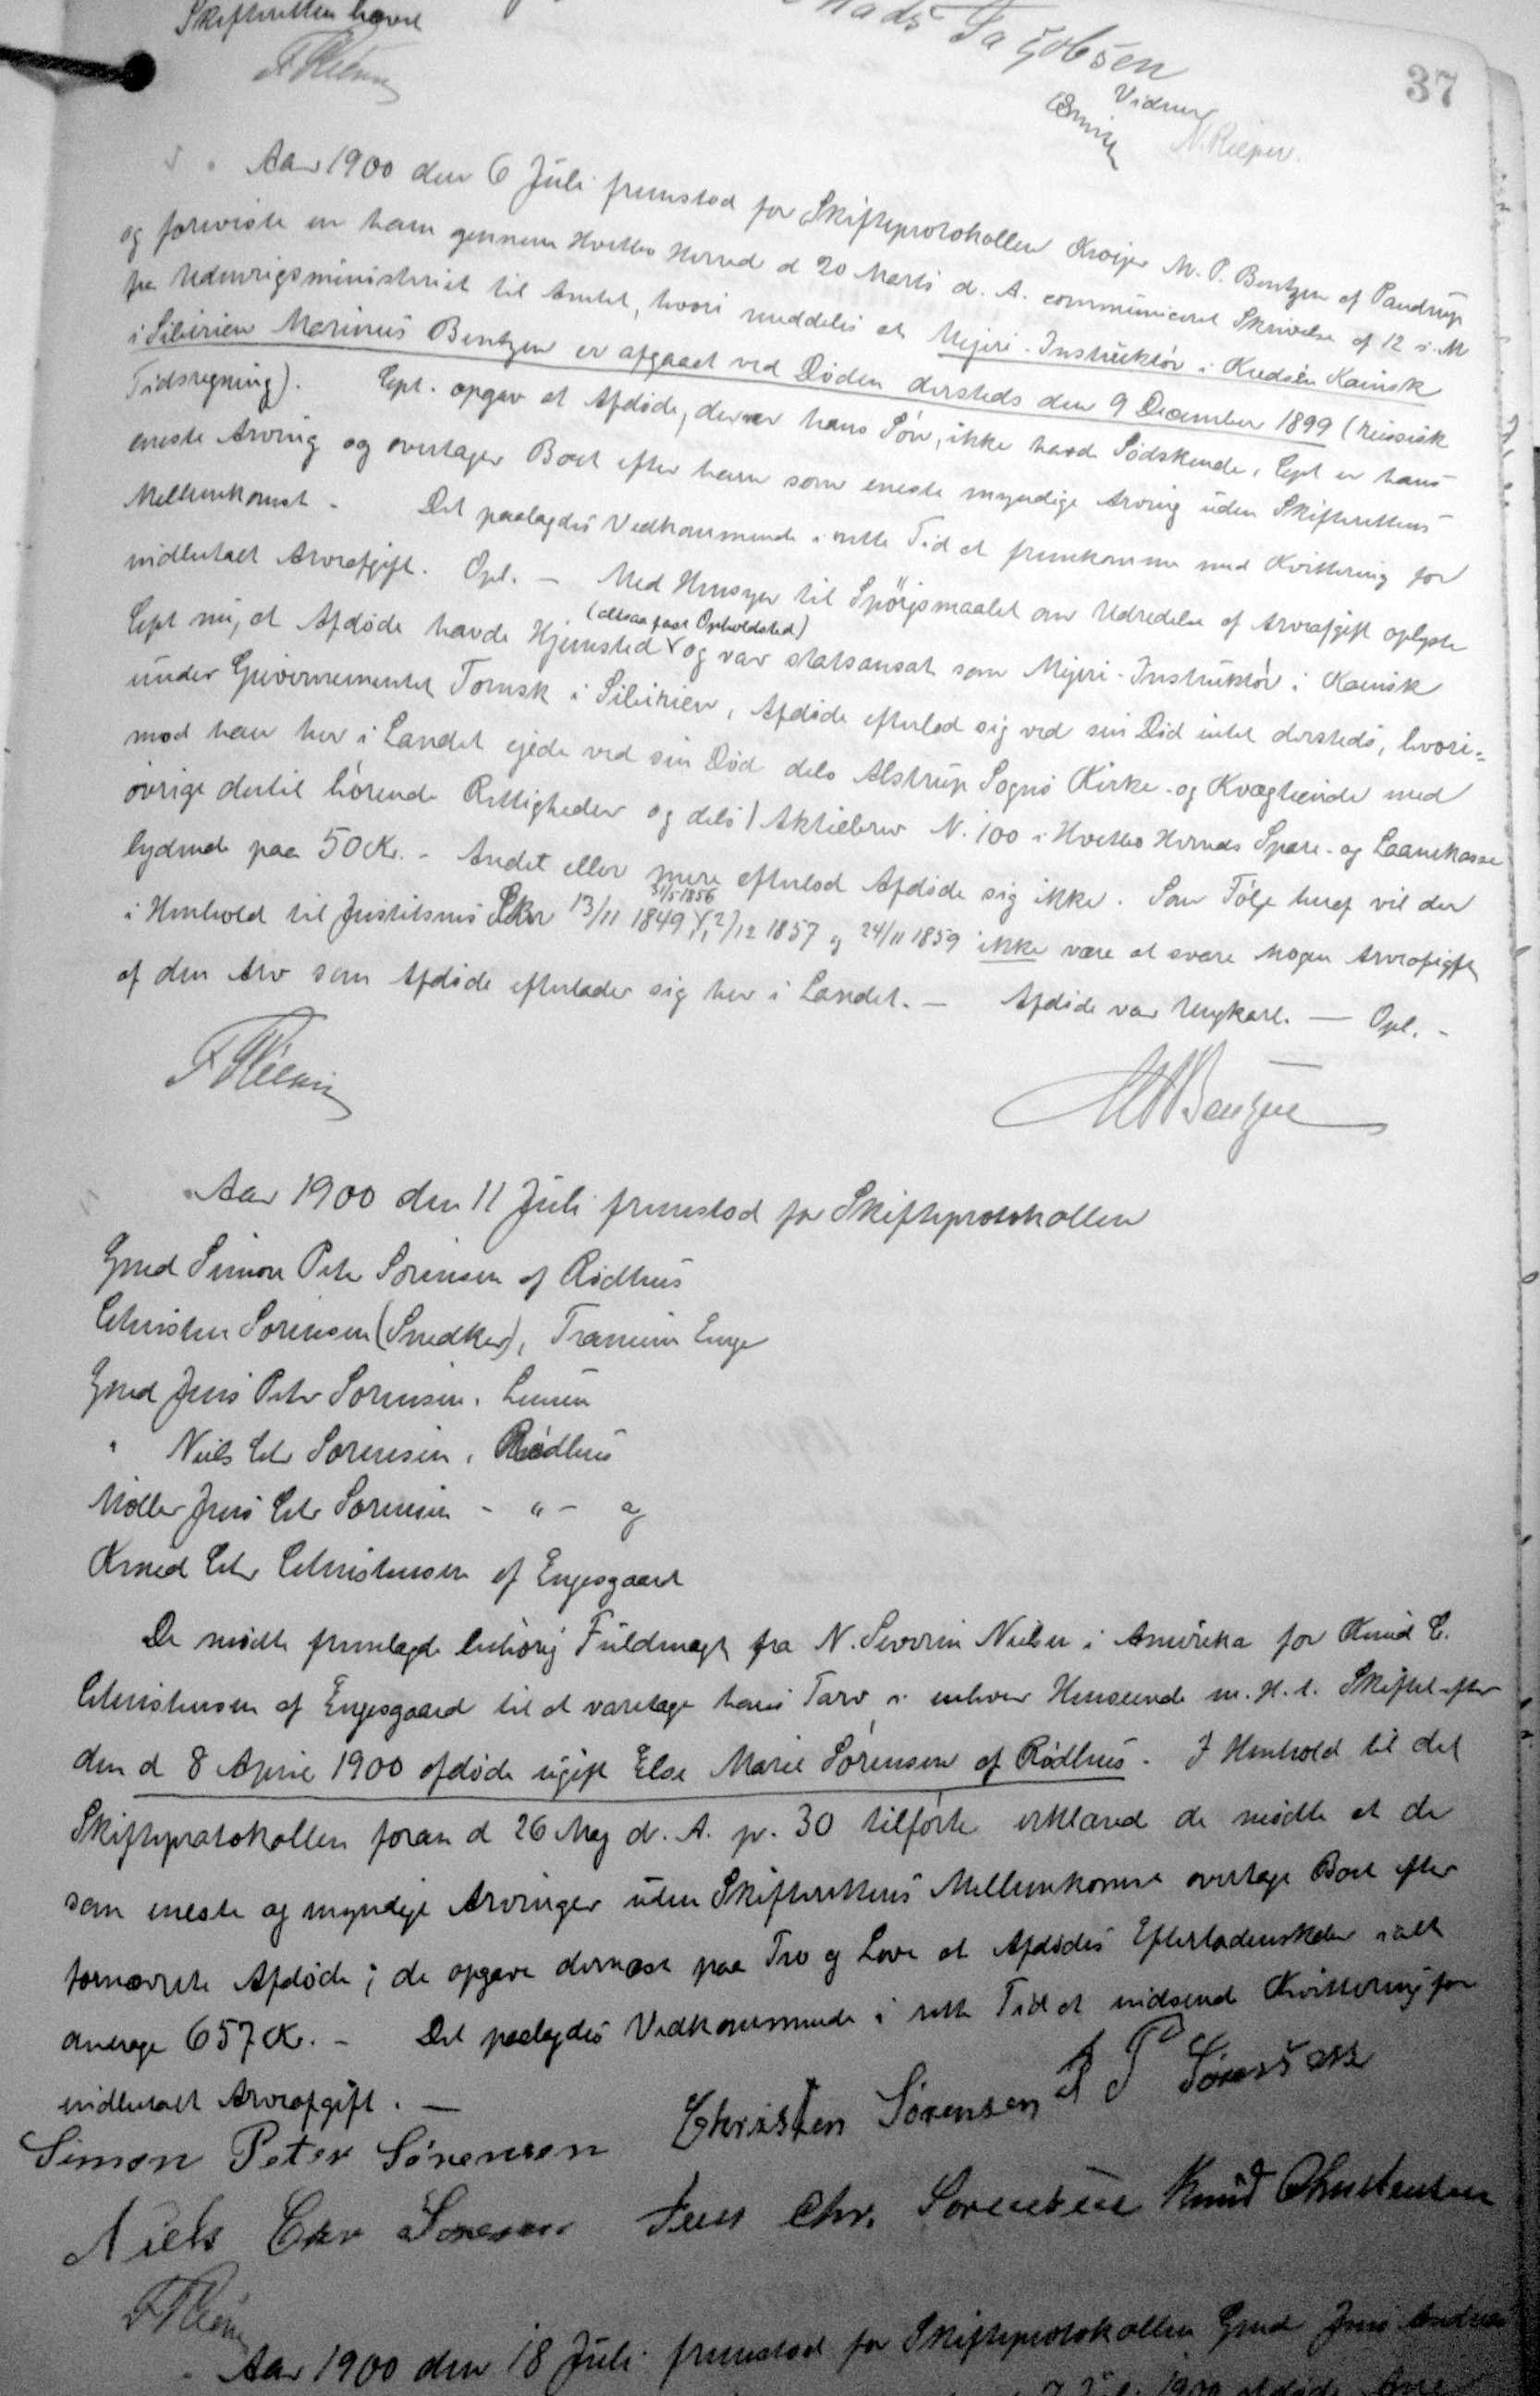 Skifteretten hævet
Mads Jacobsen
37
Vidner
N. Kieper.
Aar 1900 den 6 Juli fremstod for Skifteprotokollen Kroejer M. P. Bentzen af Pandrup
og foreviste en ham gennem Hvetbo Herred d 20 Marts d. A. communiceret Skrivelse af 12 s. M
fra Udenrigsministeriet til Amtet, hvori meddeles at Mejeri-Instruktör i Kredsen Kainsk
i Sibirien Marinus Bentzen er afgaaet ved Døden dersteds den 9 December 1899 (russisk
Tidsregning). Cpt. opgav at Afdøde, der er hans Sön, ikke havde Södskende, Cpt er hans
eneste Arving og overtager Boet efter ham som eneste myndige Arving uden Skifterettens
Mellemkomst - Det paalagdes Vedkommende i rette Tid at fremkomme med Kvittering for
indbetalt Arveafgift. Opl. - Med Hensyn til Spörgsmaalet om Udredelse af Arveafgift oplyste
(altsaa fast Opholdsted)
Cpt nu, at Afdøde havde Hjemsted og var statsansat som Mejeri-Instruktör i Kainsk
under Guvernementet Tomsk i Sibirien, Afdøde efterlod sig ved sin Død intet dersteds, hvori-
mod han her i Landet ejede ved sin Død dels Alstrup Sogns Kirke- og Kvægtiende med
övrige dertil hörende Rettigheder og dels 1 Aktiebrev N. 100 i Hvetbo Herreds Spare- og Laanekasse
lydende paa 50 Kr. - Andet eller mere efterlod Afdøde sig ikke. Som Fölge heraf vil der
31/5 1856
i Henhold til Justitsmis Skr 13/11 1849, 12/12 1857 og 24/11 1859 ikke være at svare nogen Arveafgift
af den Arv som Afdøde efterlader sig her i Landet. - Afdøde var Ungkarl. - Opl. -
M P Bentzen
Aar 1900 den 11 Juli fremstod for Skifteprotokollen
Gmd Simon Peter Sörensen af Rödhus
Christen Sörensen (Snedker), Tranum Enge
Gmd Jens Peter Sörensen, Lemen
" Niels Chr Sörensen, Rödhus
Möller Jens Chr Sörensen - " - og
Knud Chr Christensen af Engesgaard
De mødte fremlagde behörig Fuldmagt fra N. Severin Nielsen i Amerika for Knud C.
Christensen af Engesgaard til at varetage hans Tarv i enhver Henseende m. H. t. Skiftet efter
den d 8 April 1900 afdøde ugift Else Marie Sörensen af Rödhus. I Henhold til det
Skifteprotokollen foran d 26 Maj d. A. p. 30 tilförte erklæred de mødte at de
som eneste og myndige Arvinger uden Skifterettens Mellemkomst overtage Boet efter
fornævnte Afdøde; de opgave dernæst paa Tro og Love at Afdødes Efterladenskaber ialt
androge 657 Kr. - Det paalagdes Vedkommende i rette Tid at indsende Kvittering for
indbetalt Arveafgift. -
Christen Sörensen J P Sörensen
Simon Peter Sörensen
Niels Chr Sörensen Jens Chr. Sörensen Knud Christensen
Aar 1900 den 18 Juli fremstod for Skifteprotokollen Gmd Jens Andreas